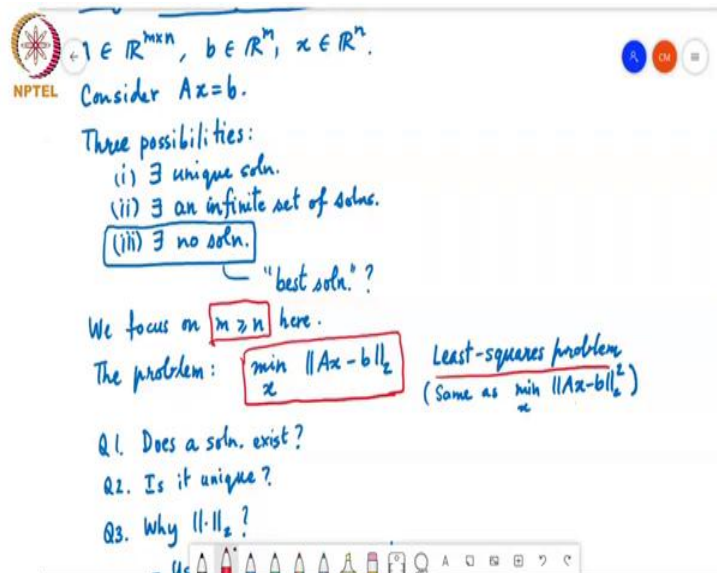 ∈ ℝ^{m×n}, b ∈ ℝ^m, x ∈ ℝ^n.
NPTEL
CM
Consider Ax=b.
Three possibilities:
(i) ∃ unique soln.
(ii) ∃ an infinite set of solns.
(iii) ∃ no soln.
"best soln."?
We focus on m ≥ n here.
The problem: min_x ||Ax-b||_2 Least-squares problem
(Same as min_x ||Ax-b||_2^2)
Q1. Does a soln. exist?
Q2. Is it unique?
Q3. Why ||·||_2?